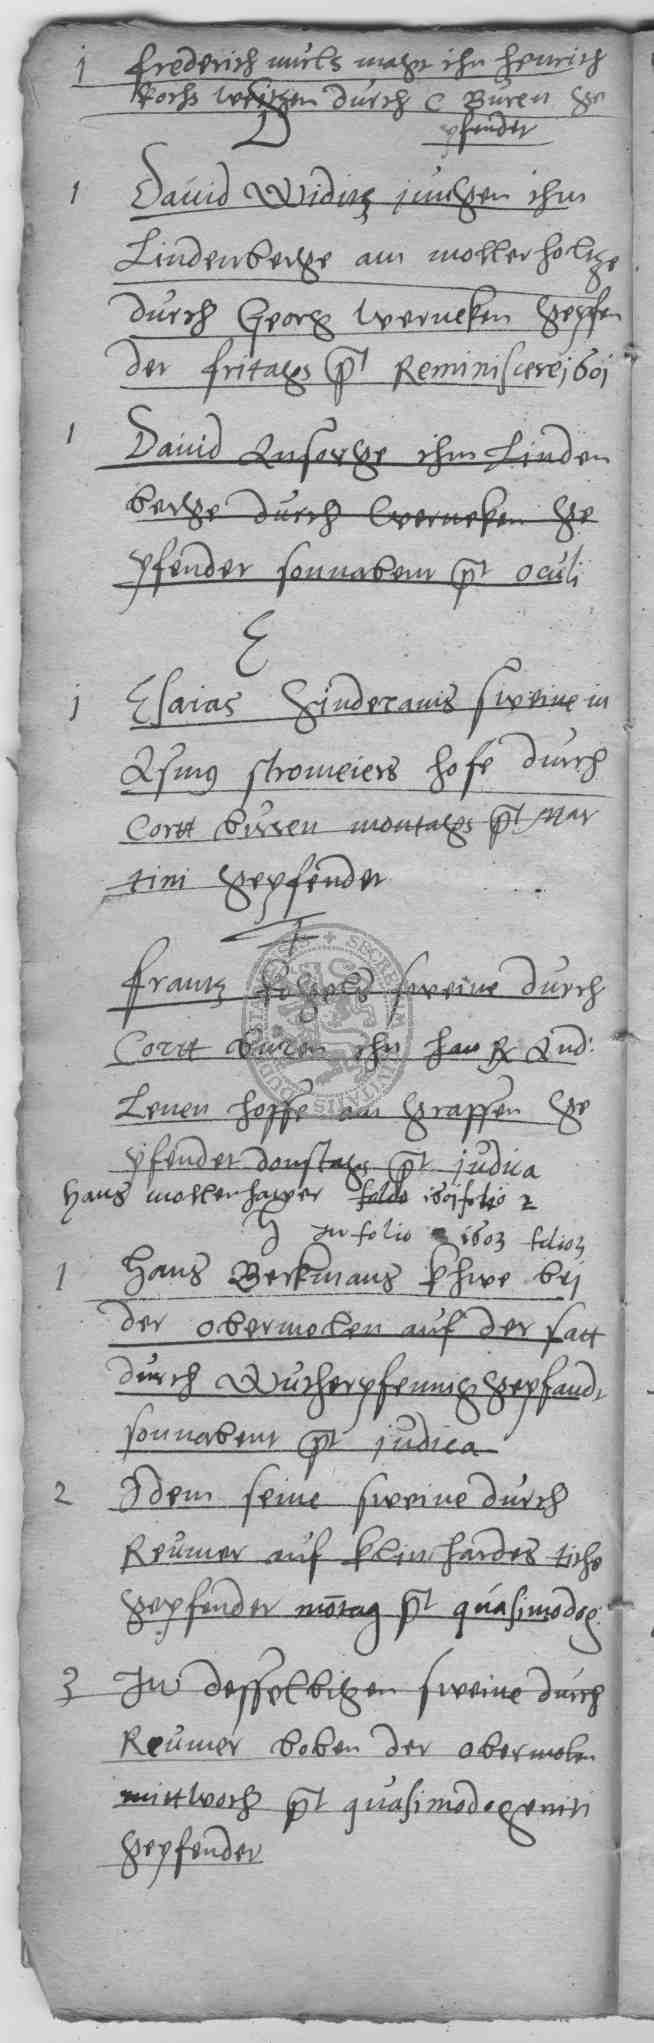 j frederich muls maget ihn henrich
Kochs weitzen durch C Buren ge
pfendet
D
1 David Widigs jungen ihm
Lindenberge am mollerholtze
durch Georg Werneken gepfen
det fritags pt Reminiscere j60j
1 David Ansorge ihm Linden
berge durch Werneken ge
pfendet sonnabent pt oculi
E
j Esaias sweine in
Asmus stromeiers hofe durch
Cortt buren montags pt Mar
tini gepfendet
F
frantz sweine durch
Cortt buren ihn And:
Lenen hoffe am grassen ge
pfendet donstags pt judica
Hans mollenhawer folio 2
H in folio 1603 folio 3
1 Hans Berkmans khwe bej
der obermolen auf der satt
durch Wucherpfennig gepfandt
sonnabent pt judica
2 Idem seine sweine durch
Reumer auf klinchardes tiche
gepfendet montag pt quasimodog:
3 Itt desselbigen sweine durch
Reumer boben der obermolen
mittwoch pt quasimodogeniti
gepfendet